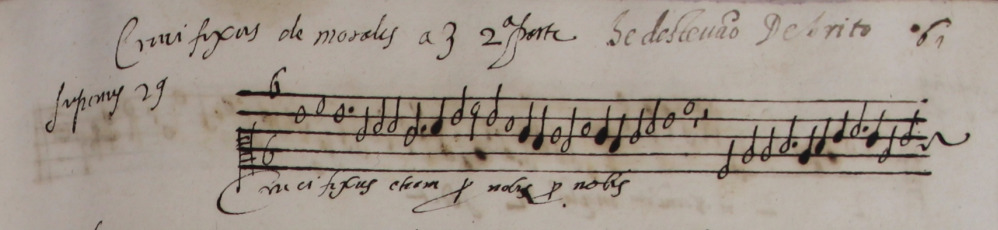 Crucifixus de morales a 3 2ª parte He destevão De Brito 61
superius 29
6
6
Crucifixus etiam p nobis p nobis